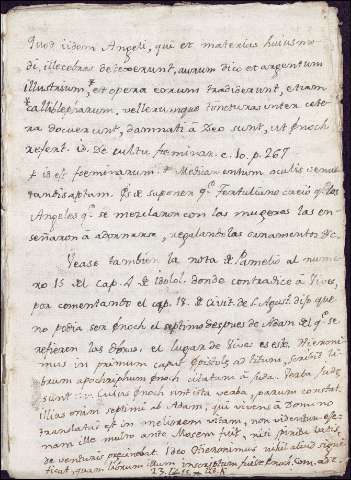 Quod iidem Angeli, qui et materias huiusmo
di, illecebras detexerunt, aurum dico et argentum
illustrium, et opera eorum tradiderunt, etiam
calliblepharum, vellerumque tincturas inter cete
ra docuerunt, damnati a Deo sunt, ut Enoch
refert. id. De cultu foeminar. c. 10. p. 267
id est foeminarum
oculis venus
tandis aptum. Es de suponer q.e Tertuliano creió q.e los
Angeles q.e se mezclaron con las mugeres las en
señaron à adornarse, regalandolas ornamentos &c.
Vease tambien la nota de Pamelio al nume
ro 15 del cap. 4 de Idolol. donde contradice à Vives,
por comentando el cap. 18. de Civit. de S. Agust. dijo que
no podia ser Enoch el septimo despues de Adam del q.e se
refieren las El lugar de Vives es este. Hieroni
mus in primum caput Epistolę ad Titum, scribit li
brum apochriphum Enoch citatum à Juda. Verba Judę
sunt Enoch ista verba, parum constat.
illias enim septimi ab Adam, qui vivens à Domino
translatus est in meliorem vitam, non videntur esse:
nam ille multo ante Mosem fuit,
de venturis Ideo Hieronimus nihil aliud signi
ficat, quam librum illum inscriptum fuisse Enoch.